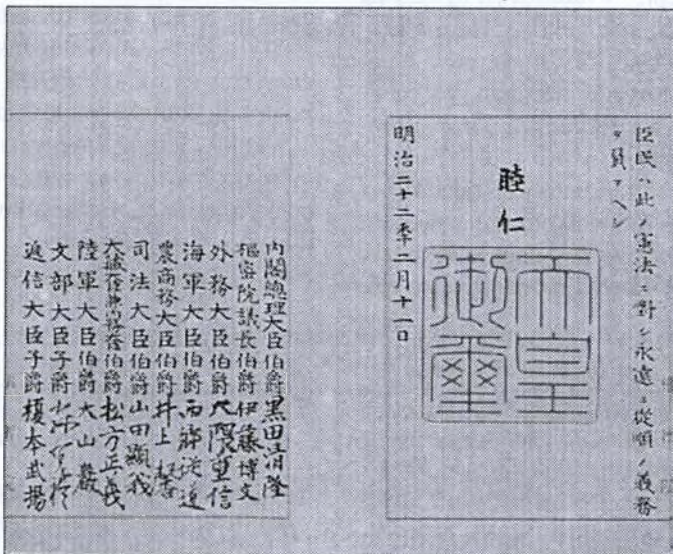 臣民ハ此ノ憲法ニ對シ永遠ニ從順ノ義務
ヲ負フヘシ
睦仁
天皇
御璽
明治二十二年二月十一日
內閣總理大臣伯爵黒田清隆
樞密院議長伯爵伊藤博文
外務大臣伯爵大隈重信
海軍大臣伯爵西郷從道
農商務大臣伯爵井上馨
司法大臣伯爵山田顯義
大藏大臣兼內務大臣伯爵松方正義
陸軍大臣伯爵大山巖
文部大臣子爵
遞信大臣子爵榎本武揚